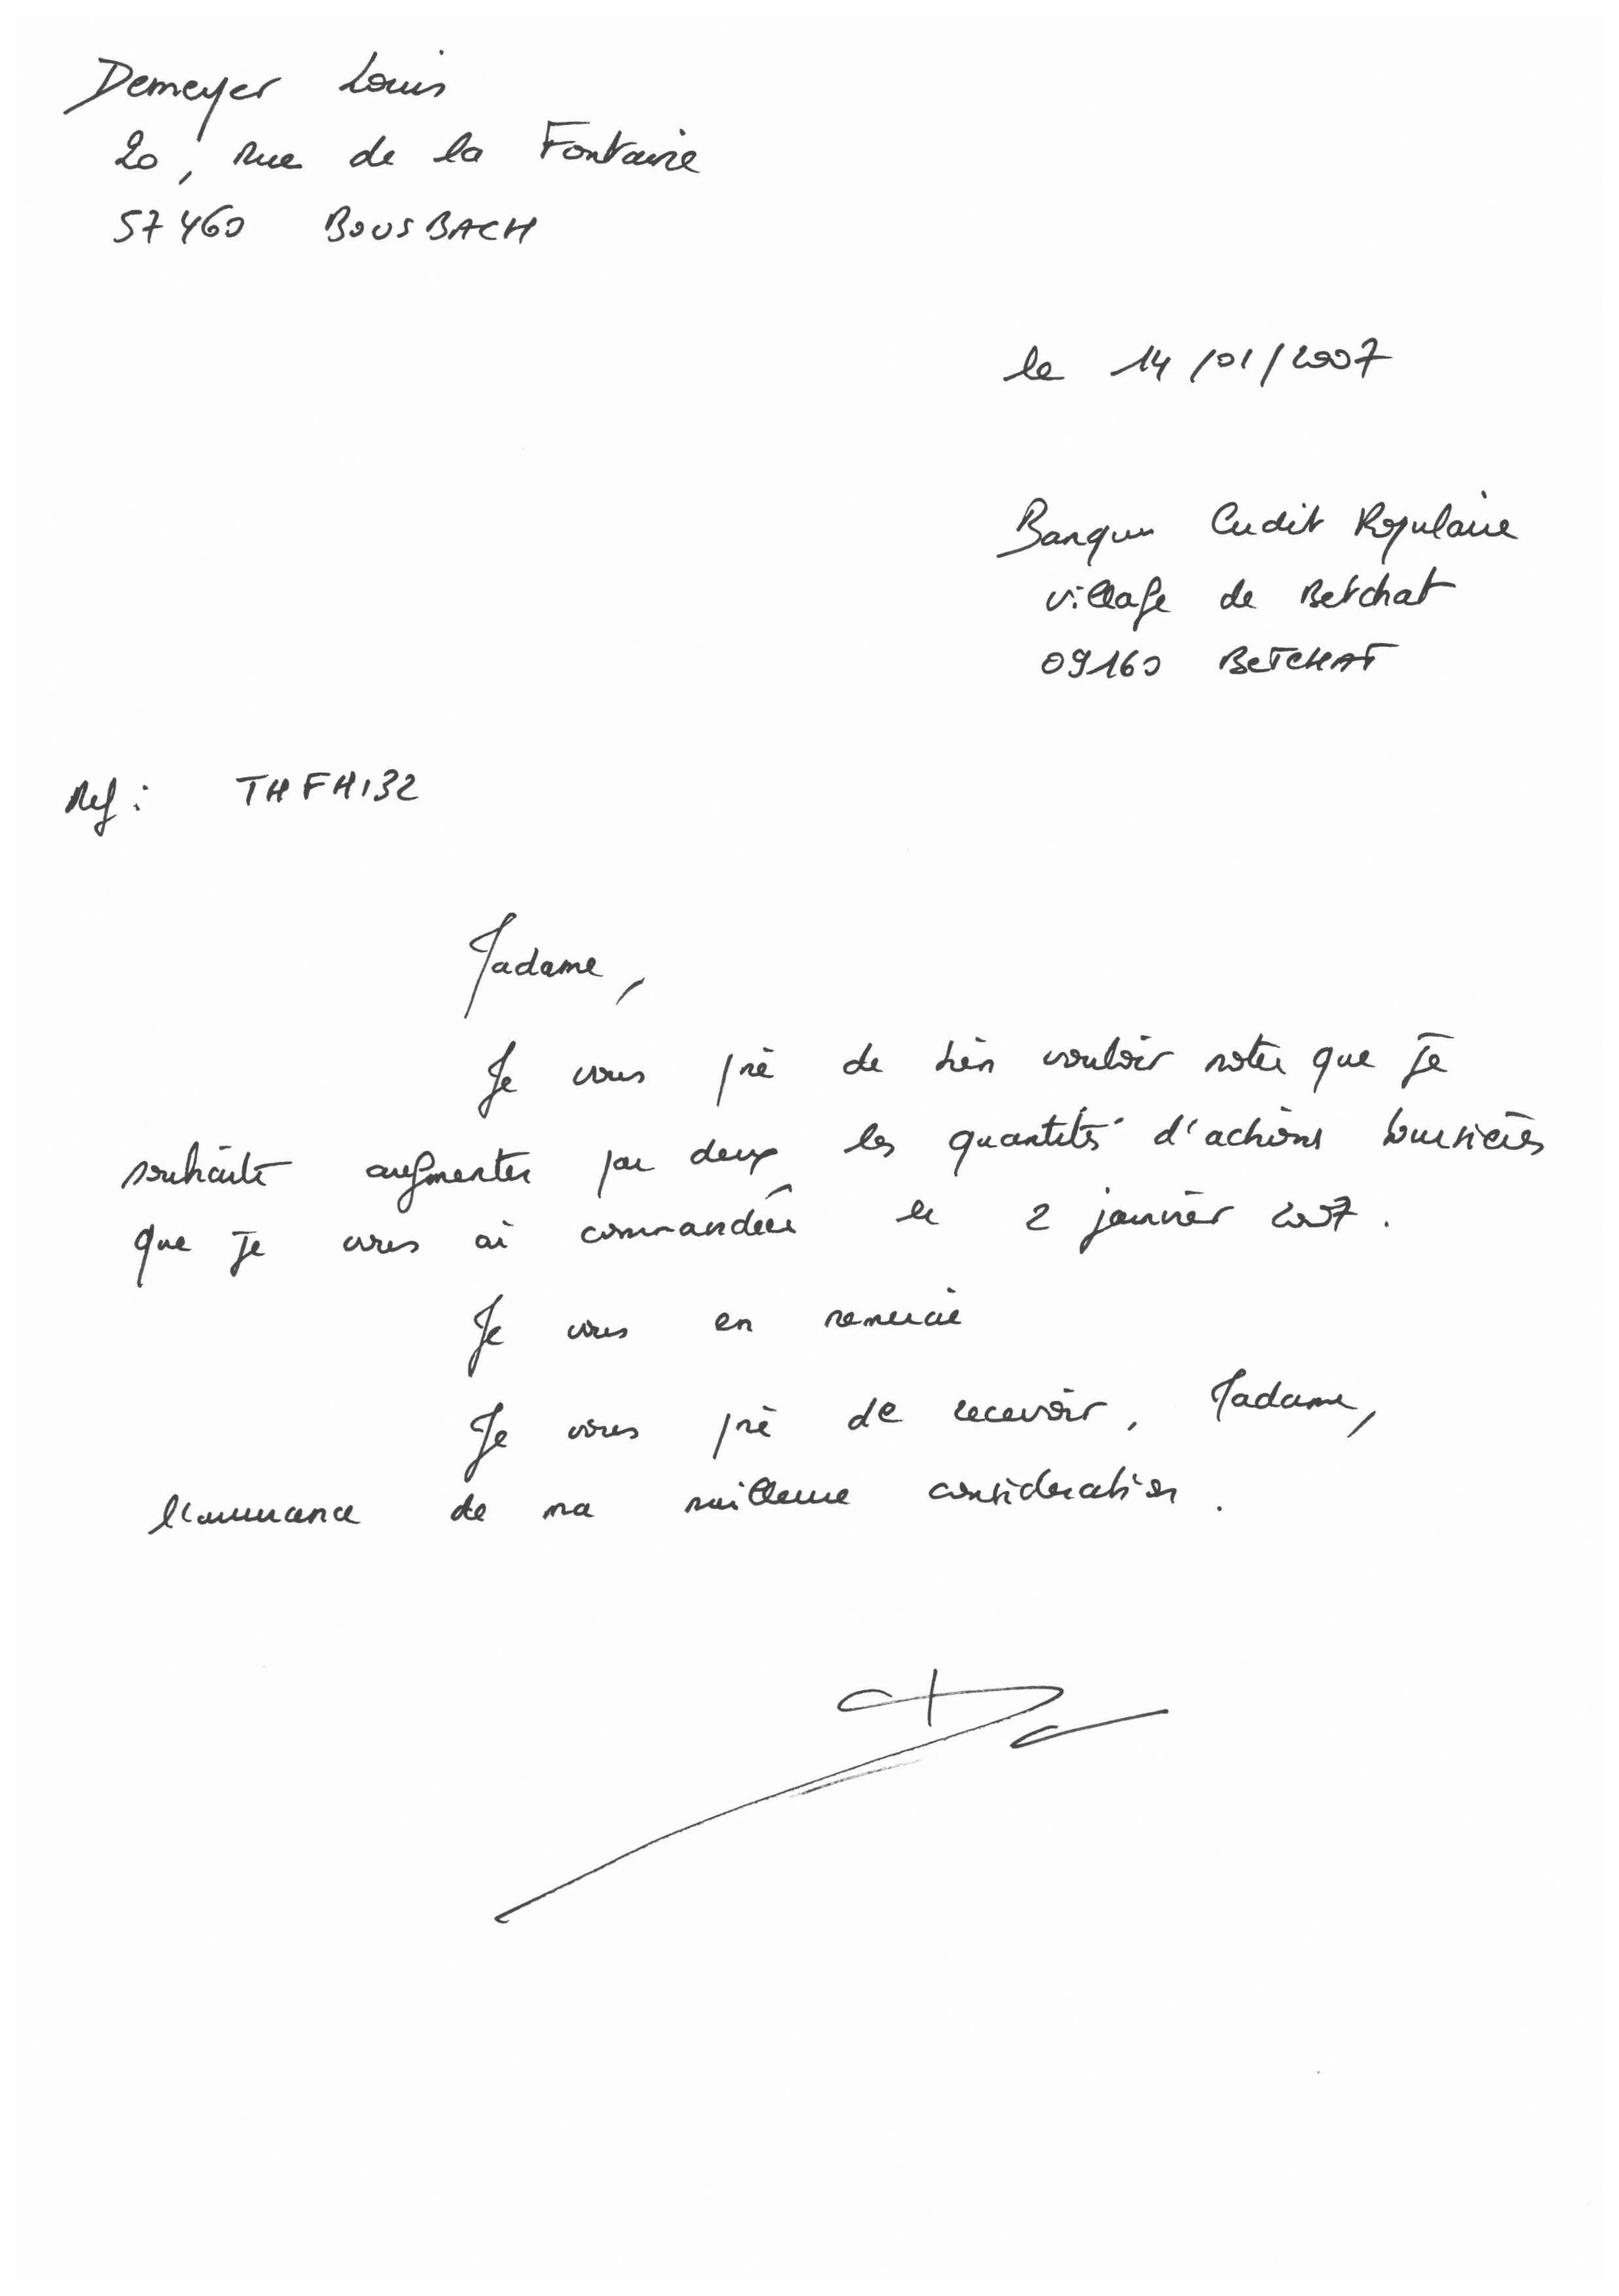 Demeyer Louis
20, rue de la Fontaine
57460 BOUSBACH
le 14/01/2007
Banque Crédit Populaire
village de Betchat
09160 BETCHAT
Ref : THFH132
Madame,
Je vous prie de bien vouloir noter que je
souhaite augmenter par deux les quantités d'actions boursières
que je vous ai commandées le 2 janvier 2007.
Je vous en remercie
Je vous prie de recevoir, Madame,
l'assurance de ma meilleure considération.